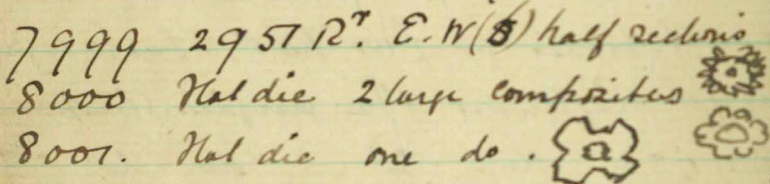 7999 2951 Rr. E. W (5) half sections
8000 Hal die 2 large composites
8001. Hal die one do.